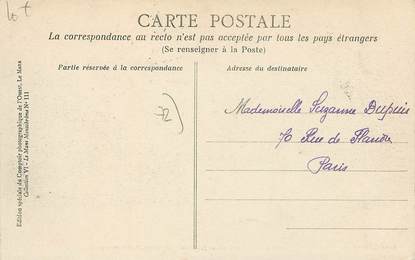 CARTE POSTALE
La correspondance au recto n'est pas acceptée par tous les pays étrangers
(Se renseigner à la Poste)
Partie réservée à la correspondance
Adresse du destinataire
Mademoiselle Suzanne Dupuis
70 Rue de
Paris
72)
Edition spéciale du Comptoir phonographique de l'Ouest, Le Mans
Collection VI - Le Mans N° 111